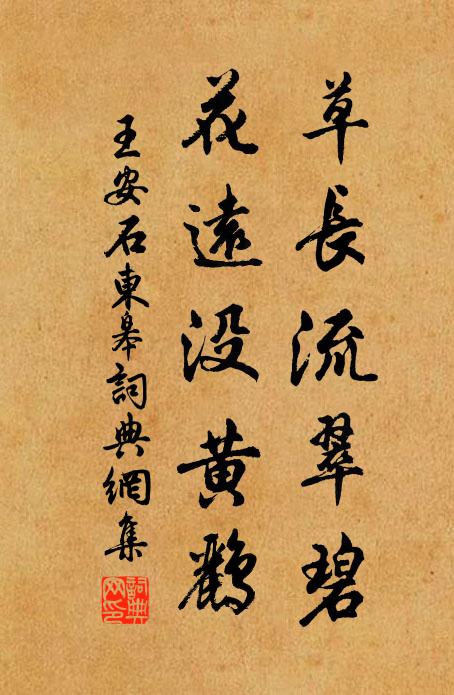 草長流翠碧
花遠没黄鸝
王安石東皋詞典網集
詞典網印